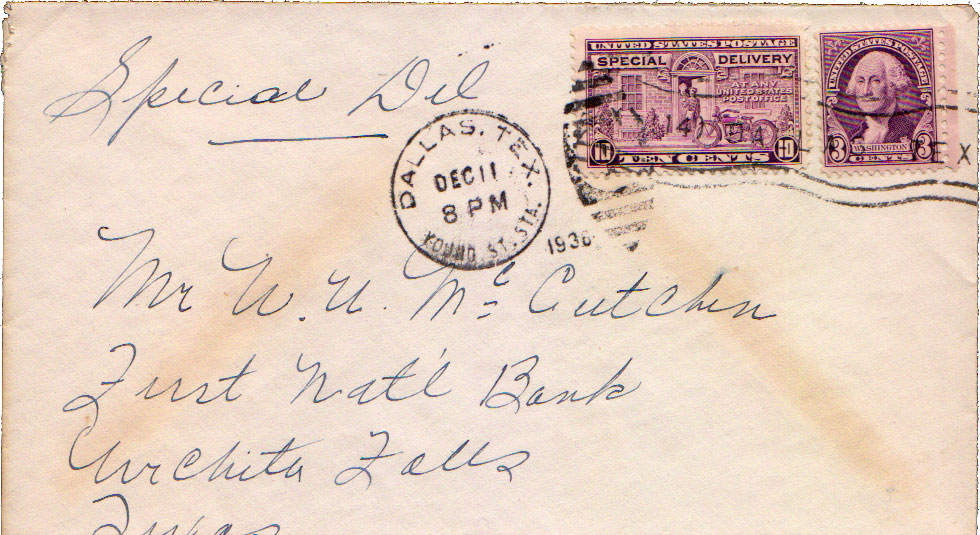 Special Del
UNITED STATES POSTAGE
SPECIAL DELIVERY
AT ANY
UNITED STATES
POST OFFICE
TEN CENTS
UNITED STATES POSTAGE
3 WASHINGTON 3
CENTS
DALLAS, TEX.
DEC 11
8 PM
ST. STA.
1936
Mr W. U. Mc Cutchen
First Nat'l Bank
Wichita Falls
Texas